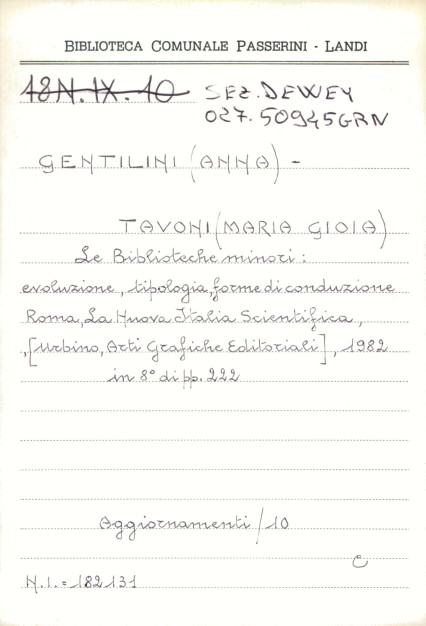 BIBLIOTECA COMUNALE PASSERINI - LANDI
18N.IX.10 SEZ.DEWEY
027.50945GRN
GENTILINI (ANNA) -
TAVONI (MARIA GIOIA)
Le Biblioteche minori:
evoluzione, tipologia, forme di conduzione
Roma, La Nuova Italia Scientifica,
,[Urbino, Arti Grafiche Editoriali], 1982
in 8° di pp. 222
Aggiornamenti/10
C
N.I.=182131